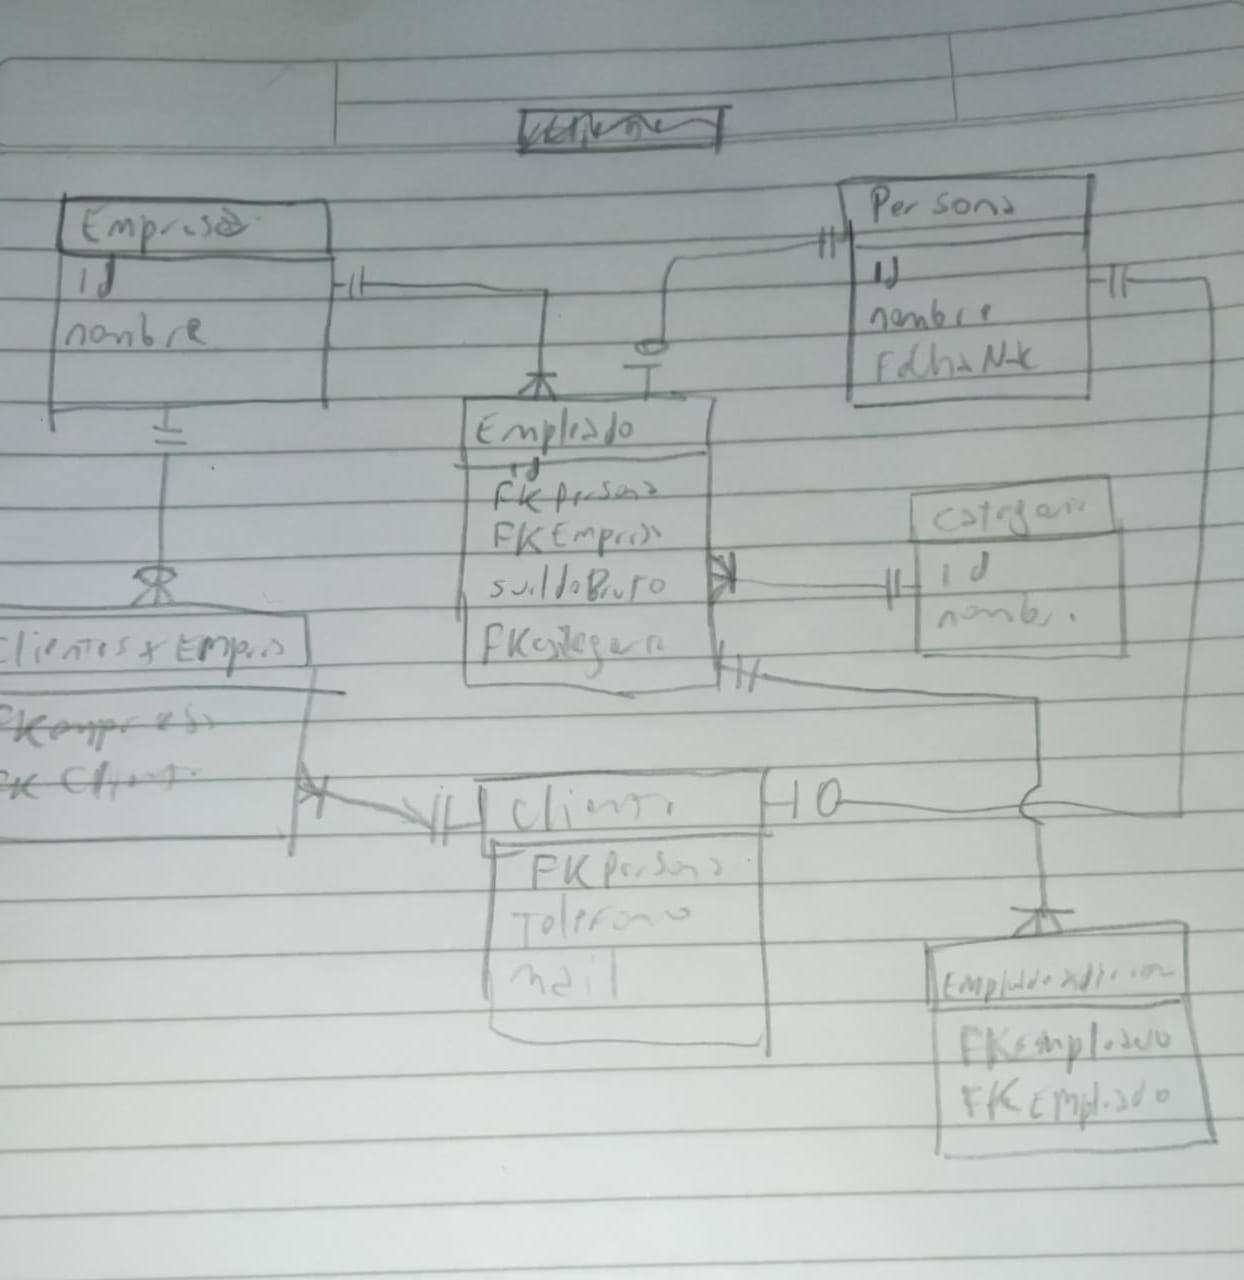 Empresa
id
nombre
Persona
id
nombre
Empleado
id
FK persona
FK Empresa
sueldoBruto
FKcategoria
categoria
id
nombre
Clientes x Empresa
FKempresa
FK Client
Cliente
FK persona
Telefono
mail
FKempleado
FK Empleado